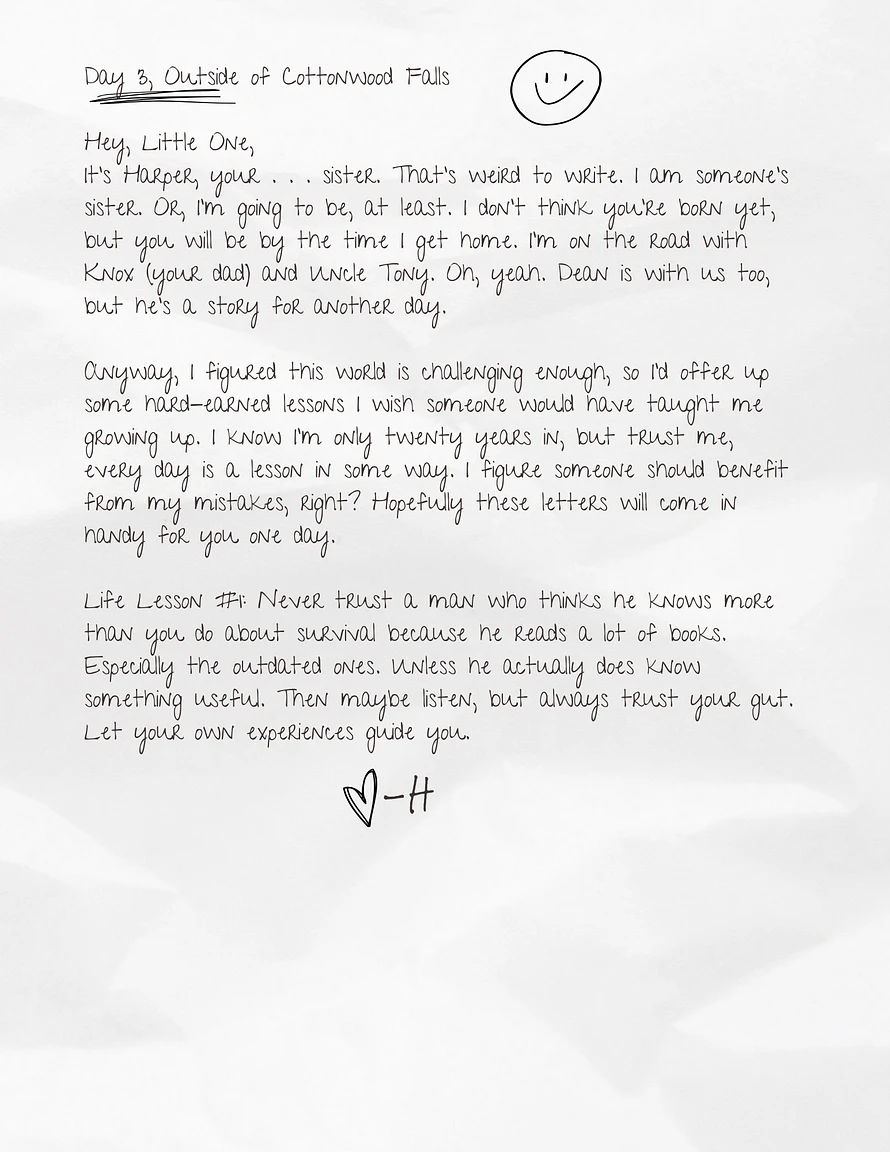 Day 3, Outside of Cottonwood Falls
Hey, Little One,
It's Harper, your . . . sister. That's weird to write. I am someone's
sister. Or, I'm going to be, at least. I don't think you're born yet,
but you will be by the time I get home. I'm on the road with
Knox (your dad) and Uncle Tony. Oh, yeah. Dean is with us too,
but he's a story for another day.
Anyway, I figured this world is challenging enough, so I'd offer up
some hard-earned lessons I wish someone would have taught me
growing up. I know I'm only twenty years in, but trust me,
every day is a lesson in some way. I figure someone should benefit
from my mistakes, right? Hopefully these letters will come in
handy for you one day.
Life Lesson #1: Never trust a man who thinks he knows more
than you do about survival because he reads a lot of books.
Especially the outdated ones. Unless he actually does know
something useful. Then maybe listen, but always trust your gut.
Let your own experiences guide you.
-H